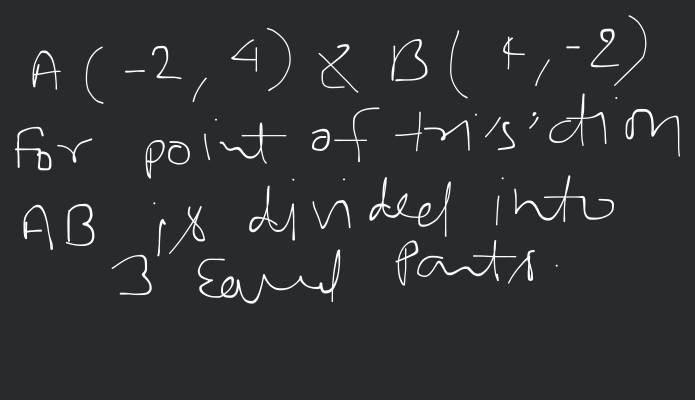 A (-2, 4) & B ( 4, -2)
For point of trisiction
AB is divided into
3 Equal Parts.